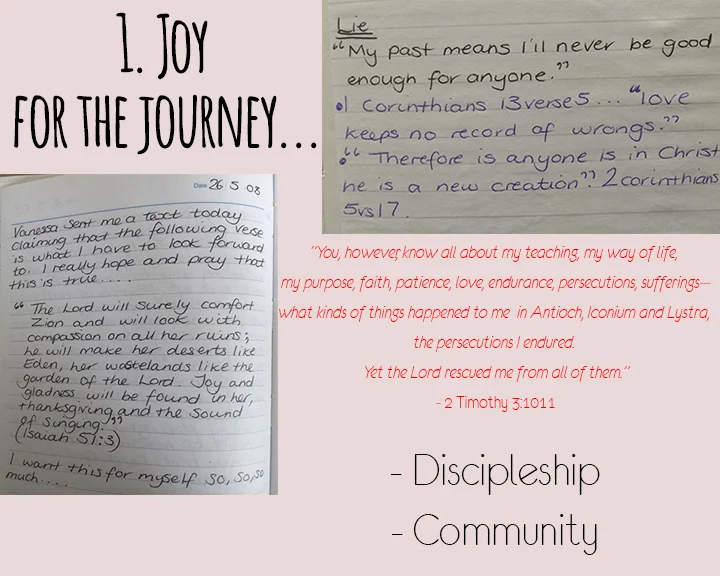 1. Joy
for the journey...
Lie
"My past means I'll never be good
enough for anyone."
•1 Corinthians 13verse5... "love
keeps no record of wrongs."
•"Therefore is anyone is in Christ
he is a new creation". 2corinthians
5vs17.
Date 26 · 5 08
Vanessa sent me a text today
claiming that the following verse
is what I have to look forward
to. I really hope and pray that
this is true.....
"The Lord will surely comfort
Zion and will look with
compassion on all her ruins;
he will make her deserts like
Eden, her wastelands like the
garden of the Lord. Joy and
gladness will be found in her,
thanksgiving and the sound
of singing."
(Isaiah 51:3)
I want this for myself so, so, so
much....
"You, however, know all about my teaching, my way of life,
my purpose, faith, patience, love, endurance, persecutions, sufferings—
what kinds of things happened to me in Antioch, Iconium and Lystra,
the persecutions I endured.
Yet the Lord rescued me from all of them."
- 2 Timothy 3:1011
- Discipleship
- Community